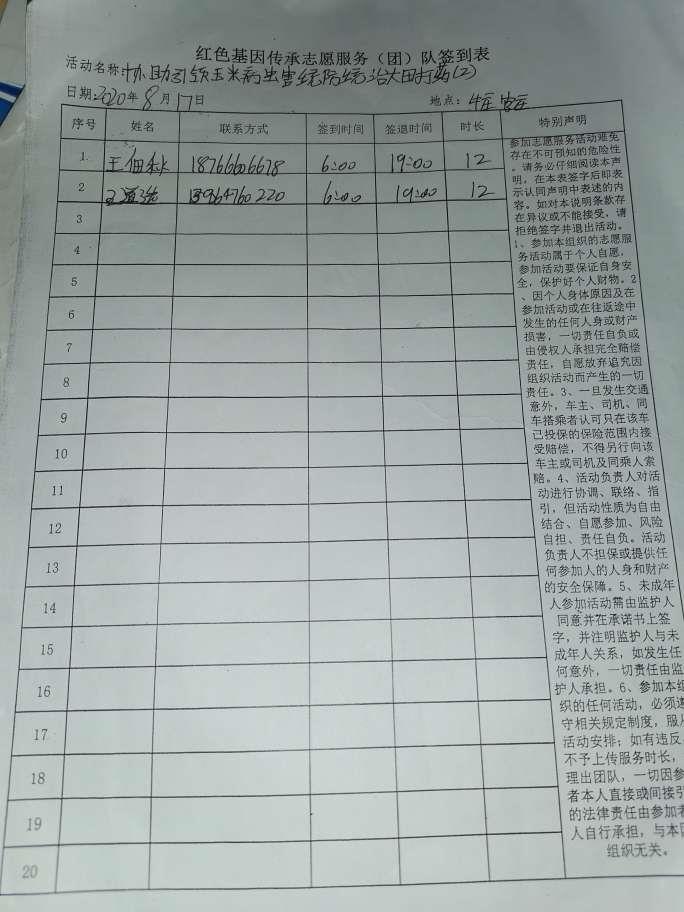 红色基因传承志愿服务（团）队签到表
活动名称:协助司领玉米病虫害统防统治大田打药(2)
日期:2020年8月17日 地点:
序号 姓名 联系方式 签到时间 签退时间 时长 特别声明
1 王 秋 18766606678 6:00 19:00 12
2 13964760220 6:00 19:00 12
3
4
5
6
7
8
9
10
11
12
13
14
15
16
17
18
19
20
参加志愿服务活动难免
存在不可预知的危险性
。请务必仔细阅读本声
明，在本表签字后即表
示认同声明中表述的内
容。如对本说明条款存
在异议或不能接受，请
拒绝签字并退出活动。
1、参加本组织的志愿服
务活动属于个人自愿，
参加活动要保证自身安
全，保护好个人财物。2
、因个人身体原因及在
参加活动或在往返途中
发生的任何人身或财产
损害，一切责任自负或
由侵权人承担完全赔偿
责任，自愿放弃追究因
组织活动而产生的一切
责任。3、一旦发生交通
意外，车主、司机、同
车搭乘者认可只在该车
已投保的保险范围内接
受赔偿，不得另行向该
车主或司机及同乘人索
赔。4、活动负责人对活
动进行协调、联络、指
引，但活动性质为自由
结合、自愿参加、风险
自担、责任自负。活动
负责人不担保或提供任
何参加人的人身和财产
的安全保障。5、未成年
人参加活动需由监护人
同意并在承诺书上签
字，并注明监护人与未
成年人关系，如发生任
何意外，一切责任由监
护人承担。6、参加本组
织的任何活动，必须遵
守相关规定制度，服从
活动安排；如有违反
不予上传服务时长，
理出团队，一切因参
者本人直接或间接引
的法律责任由参加者
人自行承担，与本团
组织无关。